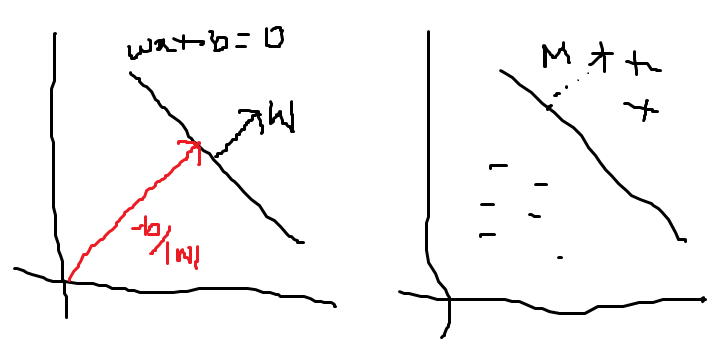 wx+b=0
W
-b/|W|
M + +
+
- -
- -
- -